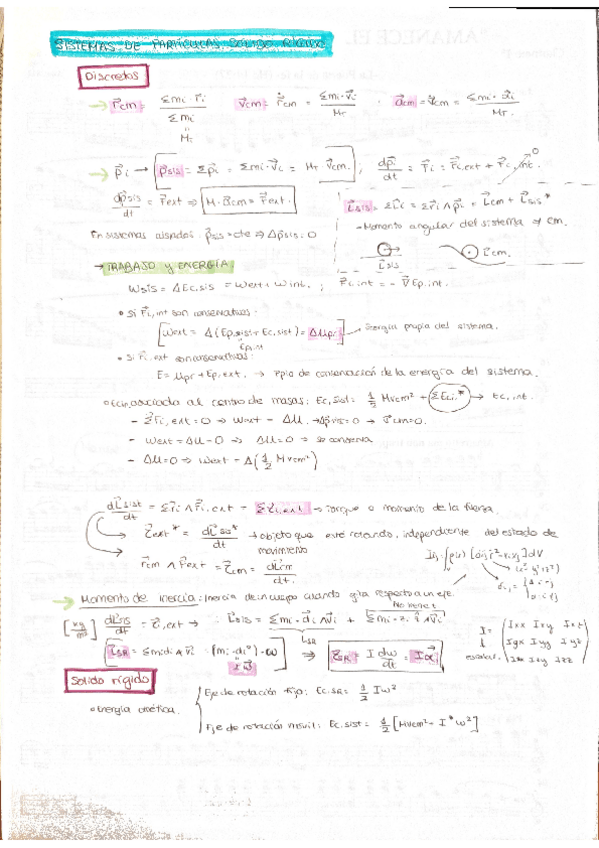 SISTEMAS DE PARTÍCULAS. SÓLIDO RÍGIDO
Discretos
→ r⃗cm = Σmi·r⃗i / Σmi = MT   v⃗cm = ṙ⃗cm = Σmi·v⃗i / MT   · a⃗cm = v̇⃗cm = Σmi·a⃗i / MT
→ p⃗i → p⃗sis = Σp⃗i = Σmi·v⃗i = MT v⃗cm. ; dp⃗i/dt = F⃗i = F⃗i,ext + F⃗i,int. 0
dp⃗sis/dt = F⃗ext ⇒ M·a⃗cm = F⃗ext.
L⃗sis = ΣL⃗i = Σr⃗i ∧ p⃗i = L⃗cm + L⃗sis*
- Momento angular del sistema
En sistemas aislados: p⃗sis = cte ⇒ Δp⃗sis = 0
L⃗sis L⃗cm.
→ TRABAJO y ENERGÍA.
Wsis = ΔEc,sis = Wext + Wint. ; F⃗i,int = -∇⃗Ep,int.
• Si F⃗i,int son conservativas:
[Wext = Δ(Ep,sist + Ec,sist) = ΔUpr] → Energía propia del sistema.
Ep,int
• Si F⃗i,ext son conservativas:
E = Upr + Ep,ext. → Ppio de conservación de la energía del sistema.
• Ecin asociada al centro de masas: Ec,sist = 1/2 Mvcm² + ΣEci* → Ec,int.
- ΣF⃗i,ext = 0 ⇒ Wext = ΔU. → Δp⃗sis = 0 → v⃗cm = 0.
- Wext = ΔU = 0 ⇒ ΔU = 0 ⇒ se conserva
- ΔU = 0 ⇒ Wext = Δ(1/2 Mvcm²)
dL⃗sist/dt = Σr⃗i ∧ F⃗i,ext = Στ⃗i,ext → Torque o momento de la fuerza.
τ⃗ext* = dL⃗sis*/dt → objeto que esté rotando, independiente del estado de movimiento
r⃗cm ∧ F⃗ext = τ⃗cm = dL⃗cm/dt.
Iij = ∫ρ(r) [δij r² - xi xj] dV
(x² + y² + z²)
→ Momento de inercia: Inercia de un cuerpo cuando gira respecto a un eje.
No tiene
[kg/m²] dL⃗sis/dt = τ⃗i,ext → ∴ L⃗sis = Σmi·d⃗i ∧ v⃗i +
L⃗SR = Σmidi ∧ v⃗i = (mi·di²)·ω
Iω⃗
⇒ τ⃗SR = I dω/dt = Iα⃗
I = (Ixx Ixy Ixz
Iyx Iyy Iyz
Izx Izy Izz)
Sólido rígido
• Energía cinética.
Eje de rotación fijo: Ec,SR = 1/2 Iω²
Eje de rotación móvil: Ec,sist = 1/2 [Mvcm² + I*ω²]